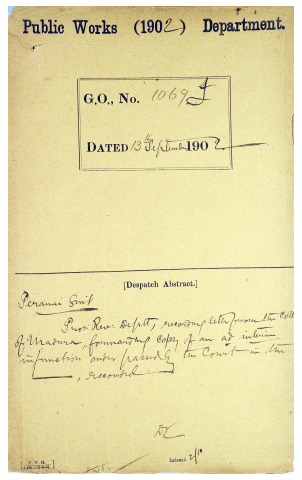 Public Works (1902) Department.
G.O., No. 1069 I
DATED 13th September 1902
[Despatch Abstract.]
Peranai Suit
Revn. Deptt, recording letter from the Coll
of Madura, forwarding copy of an ad interim
injunction order passed by the Court in the
, recorded.
Indexed